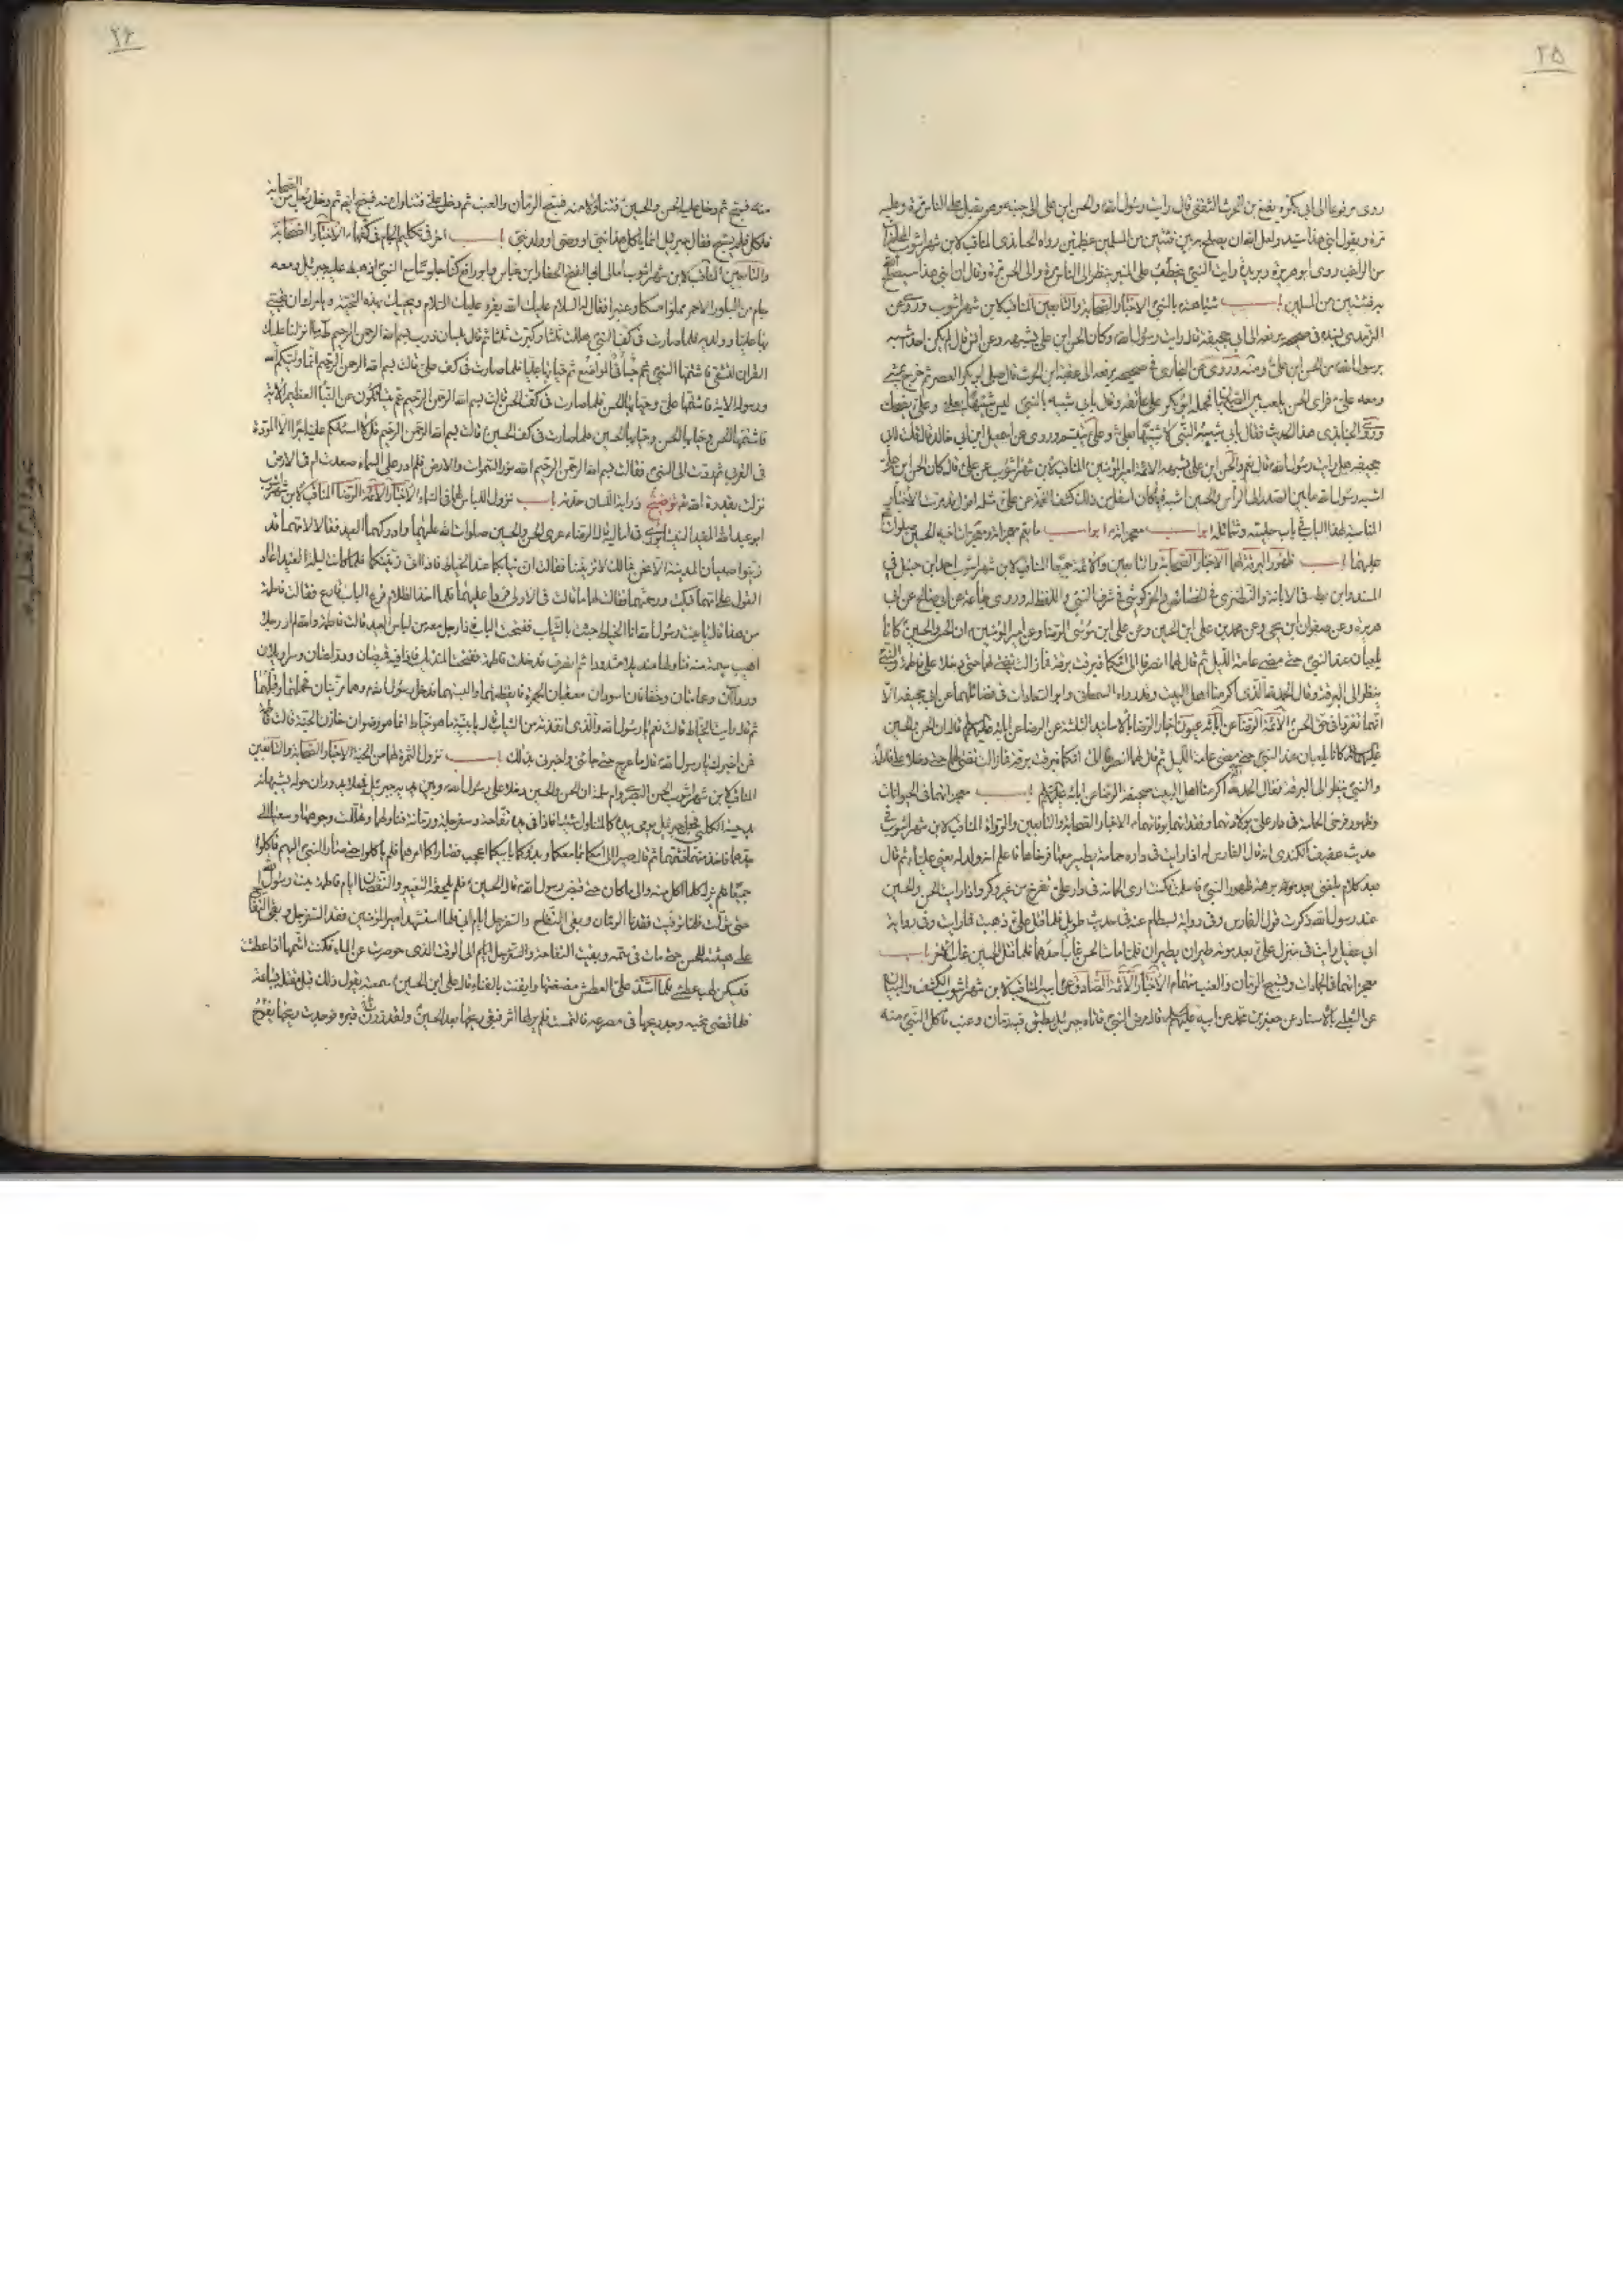 ٢٥
روى مرفوعا الى ابى بكرة نفيع بن الحرث الثقفى قال رايت رسول الله والحسن ابن على الى جنبه وهو يقبل على الناس مرة وعليه
مرة ويقول ابنى هذا سيد ولعل الله ان يصلح به بين فئتين من المسلمين عظيمتين رواه الجنابذى المناقب لابن شهراشوب
روى ابو هريرة وبريدة رايت النبى يخطب على المنبر ينظر الى الناس مرة والى الحسن مرة وقال ان ابنى هذا سيصلح الله
به فئتين من المسلمين باب شباهته بالنبى الاخبار الصحابة والتابعين المناقب لابن شهراشوب
الترمذى فى صحيحه يرفعه الى ابى جحيفة قال رايت رسول الله وكان الحسن ابن على يشبهه وعن انس قال لم يكن احد اشبه
برسول الله من الحسن ابن على ومنه وروى عن البخارى فى صحيحه يرفعه الى عقبة ابن الحرث قال صلى ابو بكر العصر ثم خرج يمشى
ومعه على فراى الحسن يلعب بين الصبيان فحمله ابو بكر على عاتقه وقال بابى شبيه بالنبى ليس شبيها بعلى وعلى يضحك
وروى الجنابذى هذا الحديث فقال بابى شبيه النبى لا شبيها بعلى وعلى يتبسم وروى عن اسمعيل ابن ابى خالد قال قلت لابى
جحيفة هل رايت رسول الله قال نعم والحسن ابن على يشبهه الائمة امير المؤمنين المناقب لابن شهراشوب عن على قال كان الحسن ابن على
اشبه برسول الله ما بين الصدر الى الرأس والحسين اشبه فيما كان اسفل من ذلك كشف الغمة عن على مثله اقول قد مرت الاخبار
المناسبة لهذا الباب فى باب حليته وشمائله ابواب معجزاته ابواب ما يعم معجزاته ومعجزات اخيه الحسين صلوات
عليهما باب ظهور البرقة لهما الاخبار الصحابة والتابعين والائمة جميعا المناقب لابن شهراشوب احمد ابن حنبل فى
المسند وابن بطة فى الابانة والنطنزى فى الخصائص والخركوشى فى شرف النبى واللفظ له وروى جماعة عن ابى صالح عن ابى
هريرة وعن صفوان ابن يحيى وعن محمد بن على ابن الحسين وعن على ابن موسى الرضا وعن امير المؤمنين ان الحسن والحسين كانا
يلعبان عند النبى حتى مضى عامة الليل ثم قال لهما انصرفا الى امكما فبرقت برقة فما زالت تضئ لهما حتى دخلا على فاطمة والنبى
ينظر الى البرقة وقال الحمد لله الذى اكرمنا اهل البيت وقد رواه السمعانى وابو السعادات فى فضائلهما عن ابى جحيفة الا
انهما تفردا فى حق الحسن الائمة الرضا عن ابائه عيون اخبار الرضا بالاسانيد الثلثة عن الرضا عن ابائه قال ان الحسن والحسين
كانا يلعبان عند النبى حتى مضى عامة الليل ثم قال لهما انصرفا الى امكما فبرقت برقة فما زالت تضئ لهما حتى دخلا على فاطمة
والنبى ينظر الى البرقة فقال الحمد لله الذى اكرمنا اهل البيت صحيفة الرضا عن ابائه مثله باب معجزاتهما فى الحيوانات
وظهور فرخى الحمامة فى دار على بولادتهما وفقدانهما بوفاتهما الاخبار الصحابة والتابعين والرواة المناقب لابن شهراشوب فى
حديث عفيف الكندى انه قال الفارس له اذا رايت فى داره حمامة يطير معها فرخاها فاعلم انه ولد له يعنى عليا ثم قال
بعد كلام بلغنى بعد برهة ظهور النبى فاسلمت فكنت ارى الحمامة فى دار على تفرخ من غير وكر واذا رايت الحسن والحسين
عند رسول الله ذكرت قول الفارس وفى رواية بسطام عنه فى حديث طويل فلما قتل على ذهبت فما رايت وفى رواية
ابى عقيل رايت فى منزل على بعد موته طيران يطيران فلما مات الحسن غاب احدهما فلما قتل الحسين غاب الاخر باب
معجزاتهما فى الجمادات وتسبيح الرمان والعنب منهما الاخبار الائمة الصادق عن ابيه المناقب لابن شهراشوب الكشف والبيان
عن الثعلبى بالاسناد عن جعفر بن محمد عن ابيه قال مرض النبى فاتاه جبرئيل بطبق فيه رمان وعنب فاكل النبى منه
٢٦
منه فسبح ثم دخل عليه الحسن والحسين فتناولا منه فسبح الرمان والعنب ثم دخل على فتناول منه فسبح ايضا ثم دخل رجل من الصحابة
فاكل فلم يسبح فقال جبرئيل انما ياكل هذا نبى او وصى او ولد نبى باب اخر فى تكليم الجام فى كفهما الاخبار الصحابة
والتابعين المناقب لابن شهراشوب امالى ابى الفتح الحفار ابن عباس وابو رافع كنا جلوسا مع النبى اذ هبط عليه جبرئيل ومعه
جام من البلور الاحمر مملوا مسكا وعنبرا فقال له السلام عليك الله يقرء عليك السلام ويحييك بهذه التحية ويامرك ان تحيى
بها عليا وولديه فلما صارت فى كف النبى هللت ثلثا وكبرت ثلثا ثم قالت بلسان ذرب بسم الله الرحمن الرحيم طه ما انزلنا عليك
القران لتشقى فاشتمها النبى ثم حيا بها عليا فلما صارت فى كف على قالت بسم الله الرحمن الرحيم انما وليكم الله
ورسوله الاية فاشتمها على وحيا بها الحسن فلما صارت فى كف الحسن قالت بسم الله الرحمن الرحيم عم يتسائلون عن النبأ العظيم الاية
فاشتمها الحسن وحيا بها الحسين فلما صارت فى كف الحسين قالت بسم الله الرحمن الرحيم قل لا اسئلكم عليه اجرا الا المودة
فى القربى ثم ردت الى النبى فقالت بسم الله الرحمن الرحيم الله نور السموات والارض فلم ادر على السماء صعدت ام فى الارض
نزلت بقدرة الله توضيح ذرابة اللسان حدته باب نزول اللباس لهما فى السماء الاخبار الائمة الرضا المناقب لابن شهراشوب
ابو عبد الله المفيد النيسابورى فى اماليه قال الرضا عرى الحسن والحسين صلوات الله عليهما وادركهما العيد فقالا لامهما قد
زينوا صبيان المدينة الا نحن فما لك لا تزينينا فقالت ان ثيابكما عند الخياط فاذا اتانى زينتكما فلما كانت ليلة العيد اعادا
القول على امهما فبكت ورحمتهما فقالت لهما ما قالت فى الاولى فردا عليها فلما اخذ الظلام قرع الباب قارع فقالت فاطمة
من هذا قال يا بنت رسول الله انا الخياط جئت بالثياب ففتحت الباب فاذا رجل ومعه من لباس العيد قالت فاطمة والله لم ار رجلا
اهيب سيمة منه فناولها منديلا مشدودا ثم انصرف فدخلت فاطمة ففتحت المنديل فاذا فيه قميصان ودراعتان وسراويلان
ورداان وعمامتان وخفان اسودان معقبان بحمرة فايقظتهما والبستهما فدخل رسول الله وهما مزينان فحملهما وقبلهما
ثم قال رايت الخياط قالت نعم يا رسول الله والذى انفذته من الثياب قال يا بنية ما هو خياط انما هو رضوان خازن الجنة قالت فاطمة
فمن اخبرك يا رسول الله قال ما عرج حتى جائنى واخبرنى بذلك باب نزول الثمرة لهما من الجنة الاخبار الصحابة والتابعين
المناقب لابن شهراشوب الحسن البصرى وام سلمة ان الحسن والحسين دخلا على رسول الله وبين يديه جبرئيل فجعلا يدوران حوله يشبهانه
بدحية الكلبى فجعل جبرئيل يومى بيده كالمتناول شيئا فاذا فى يده تفاحة وسفرجلة ورمانة فناولهما وتهللت وجوههما وسعيا الى
جدهما فاخذ منهما فشمهما ثم قال صيرا الى امكما بما معكما وبدؤكما بابيكما اعجب فصارا كما امرهما فلم ياكلوا حتى صار النبى اليهم فاكلوا
جميعا فلم يزل كلما اكل منه عاد الى ما كان حتى قبض رسول الله قال الحسين فلم يلحقه التغيير والنقصان ايام فاطمة بنت رسول الله
حتى توفيت فلما توفيت فقدنا الرمان وبقى التفاح والسفرجل ايام ابى فلما استشهد امير المؤمنين فقد السفرجل وبقى التفاح
على هيئته للحسن حتى مات فى سمه وبقيت التفاحة الى الوقت الذى حوصرت عن الماء فكنت اشمها اذا عطشت
فيسكن لهب عطشى فلما اشتد على العطش عضضتها وايقنت بالفناء قال على ابن الحسين سمعته يقول ذلك قبل مقتله بساعة
فلما قضى نحبه وجد ريحها فى مصرعه فالتمست فلم ير لها اثر فبقى ريحها بعد الحسين ولقد زرت قبره فوجدت ريحها يفوح